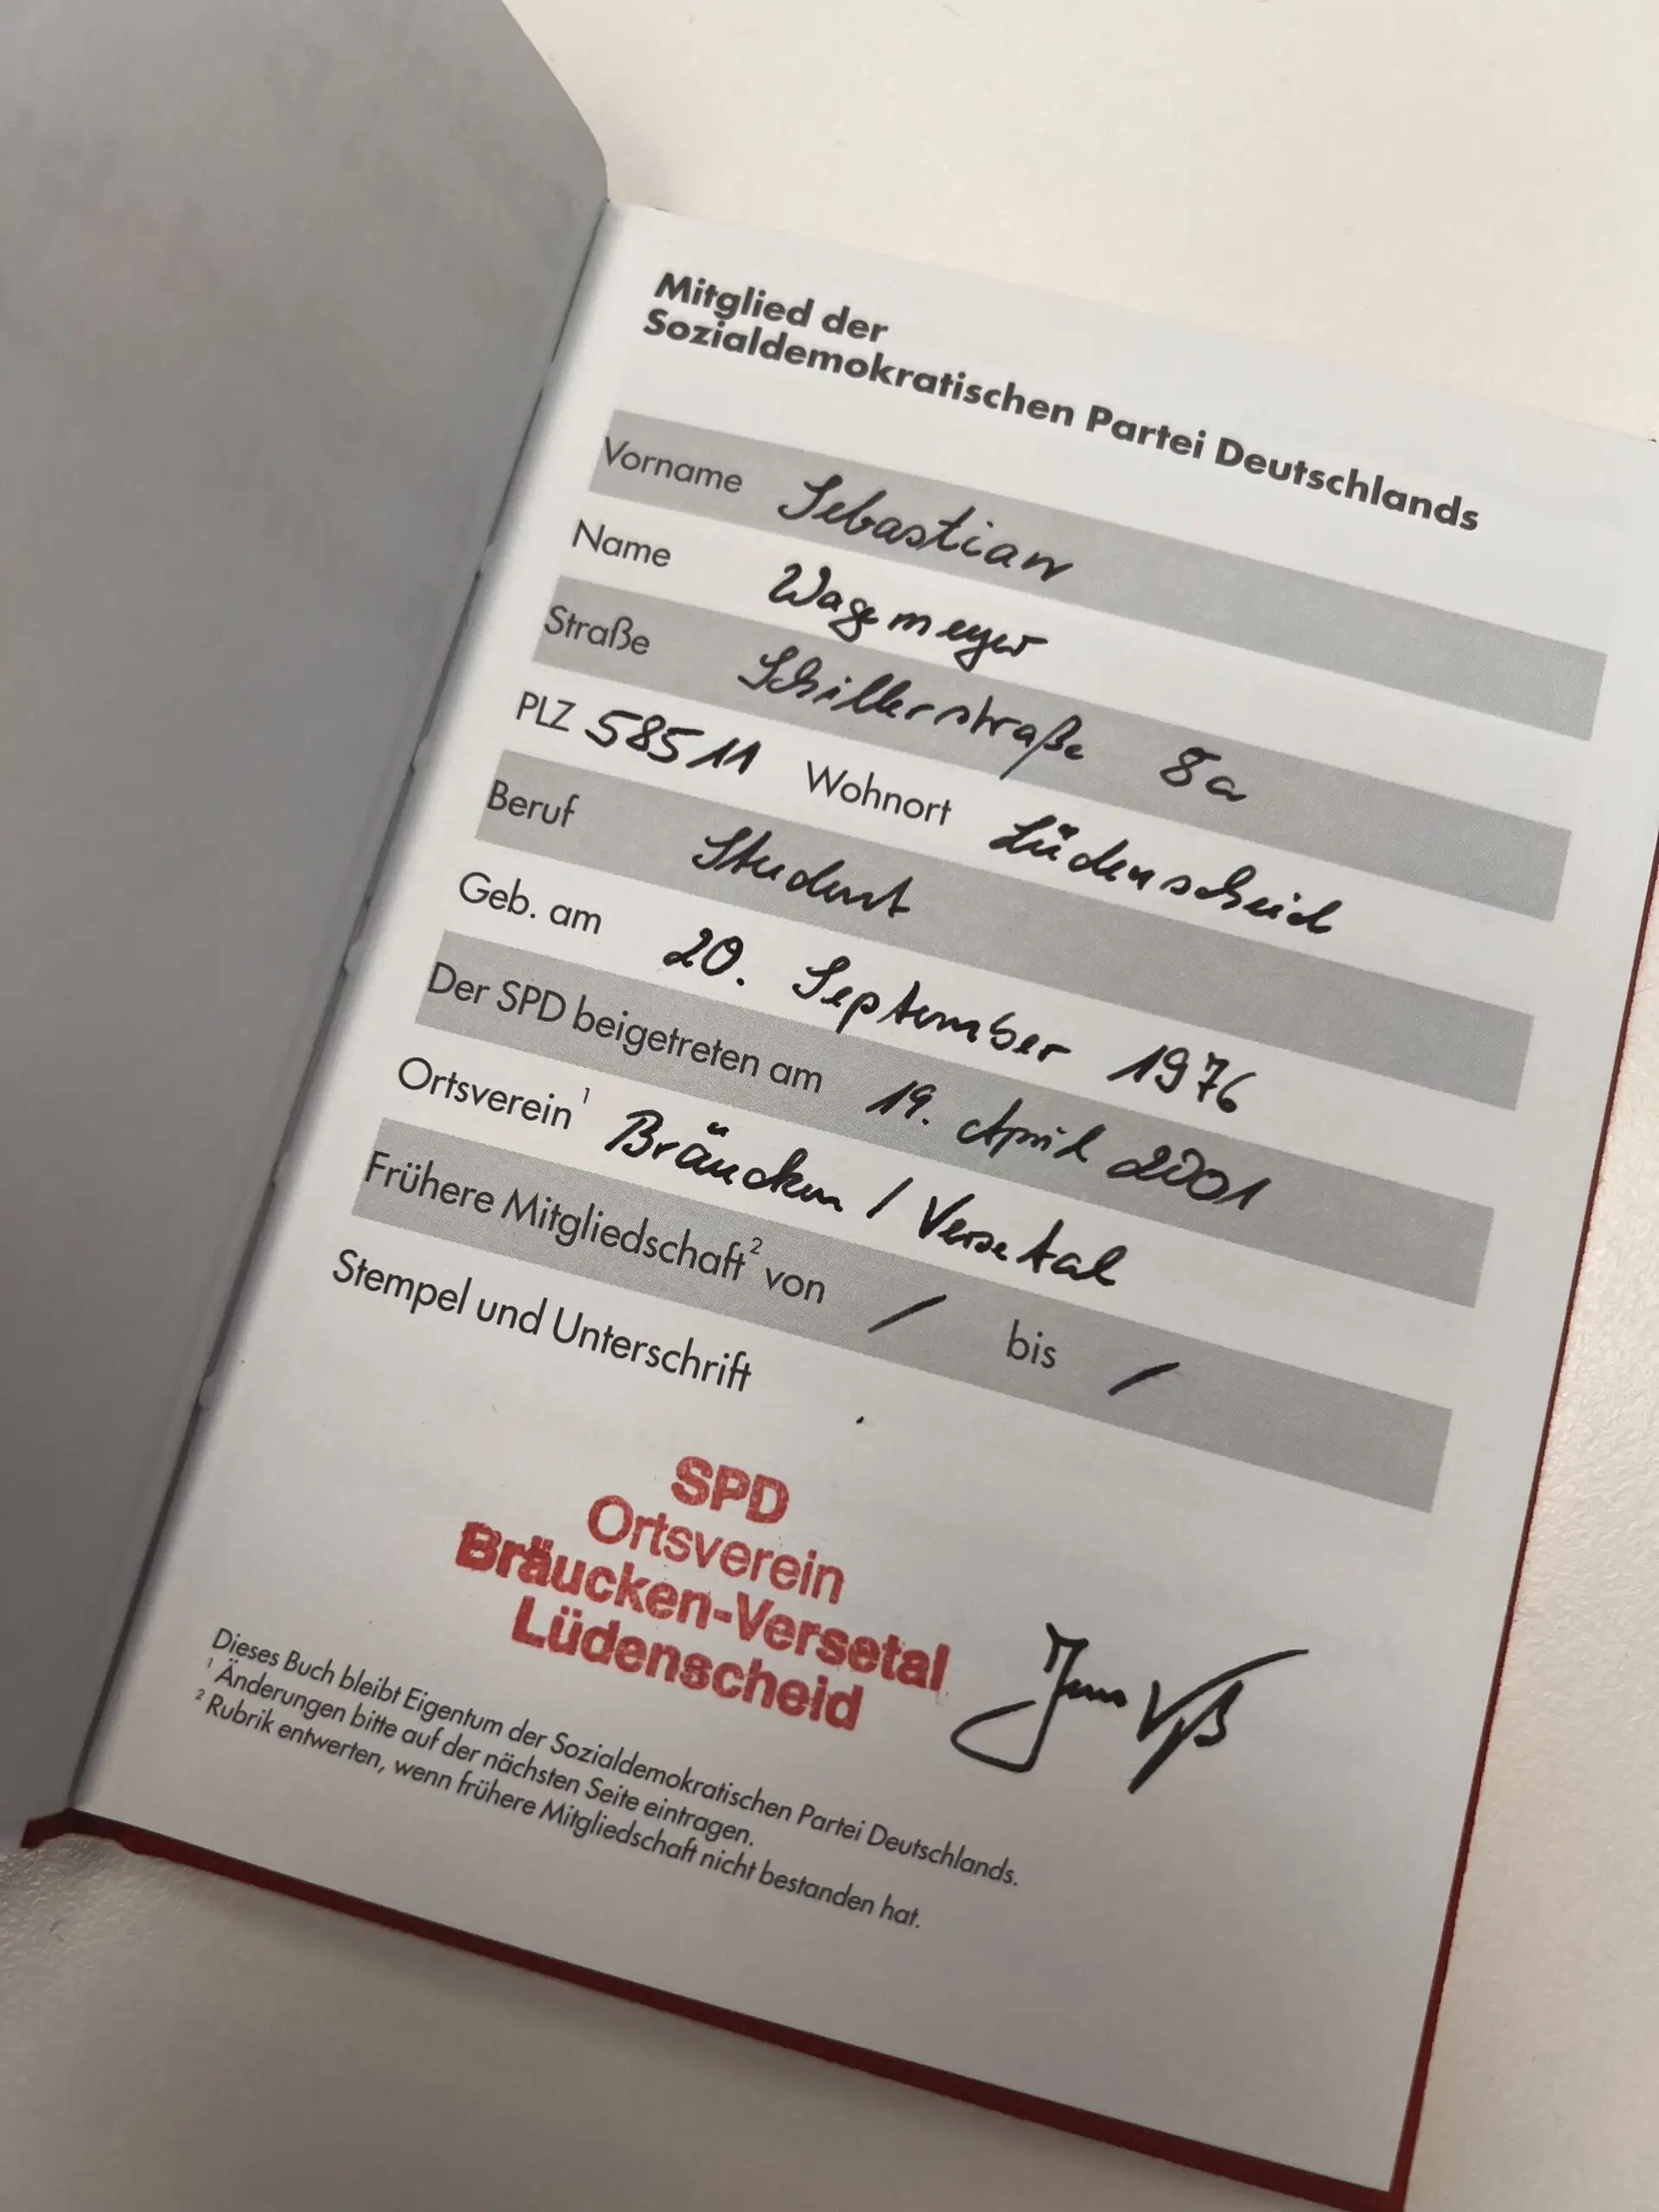 Mitglied der
Sozialdemokratischen Partei Deutschlands
Vorname Sebastian
Name Wagemeyer
Straße Schillerstraße 8a
PLZ 58511 Wohnort Lüdenscheid
Beruf Student
Geb. am 20. September 1976
Der SPD beigetreten am 19. April 2001
Ortsverein¹ Bräucken / Versetal
Frühere Mitgliedschaft² von / bis /
Stempel und Unterschrift
SPD
Ortsverein
Bräucken-Versetal
Lüdenscheid
Jens Voß
Dieses Buch bleibt Eigentum der Sozialdemokratischen Partei Deutschlands.
¹ Änderungen bitte auf der nächsten Seite eintragen.
² Rubrik entwerten, wenn frühere Mitgliedschaft nicht bestanden hat.